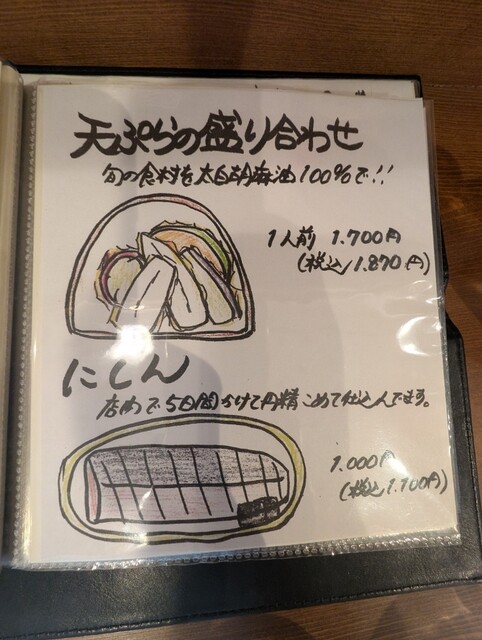 天ぷらの盛り合わせ
旬の食材を太白胡麻油100%で!!
1人前 1.700円
(税込 1.870円)
にしん
店内で5日間かけて丹精こめて仕込んでます。
1.000円
(税込 1.100円)